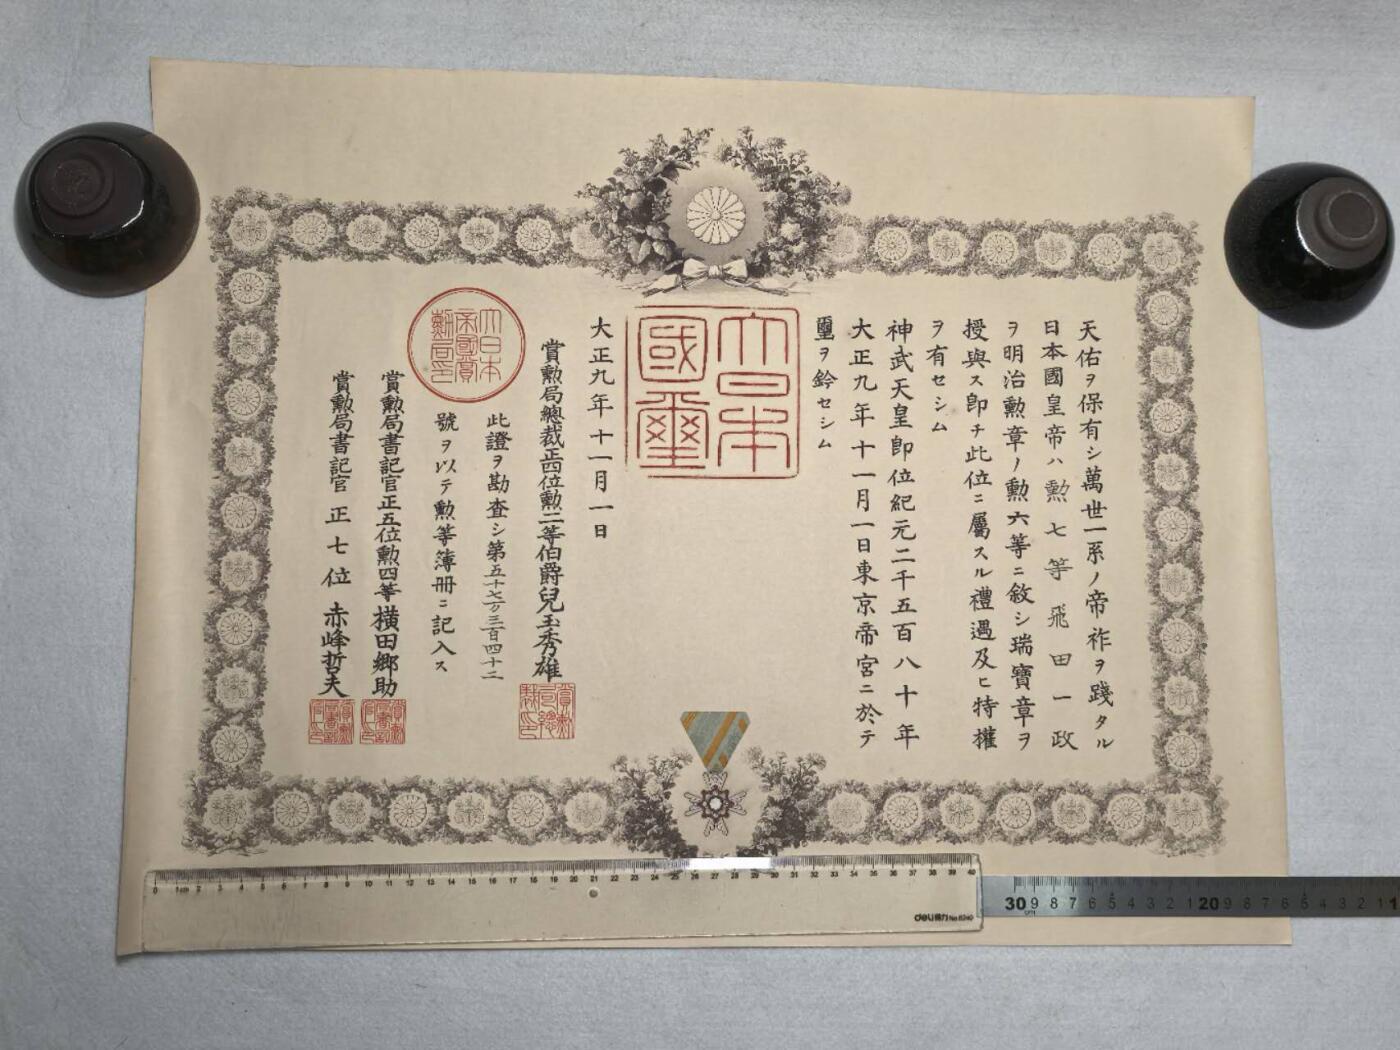 天佑ヲ保有シ萬世一系ノ帝祚ヲ踐タル
日本國皇帝ハ勲七等飛田一政
ヲ明治勲章ノ勲六等ニ敘シ瑞寶章ヲ
授與ス即チ此位ニ屬スル禮遇及ヒ特權
ヲ有セシム
神武天皇即位紀元二千五百八十年
大正九年十一月一日東京帝宮ニ於テ
璽ヲ鈐セシム
大日本
國璽
大正九年十一月一日
賞勲局總裁正四位勲二等伯爵兒玉秀雄
賞勲局總裁之印
大日本
帝國賞
勲局印
此證ヲ勘査シ第五十七万三百四十二
號ヲ以テ勲等簿冊ニ記入ス
賞勲局書記官正五位勲四等横田郷助
賞勲局書記官正七位赤峰哲夫
0 1cm 2 3 4 5 6 7 8 9 10 11 12 13 14 15 16 17 18 19 20 21 22 23 24 25 26 27 28 29 30 31 32 33 34 35 36 37 38 39 40
deli得力 No.6240
30 9 8 7 6 5 4 3 2 1 20 9 8 7 6 5 4 3 2 1 1
cm